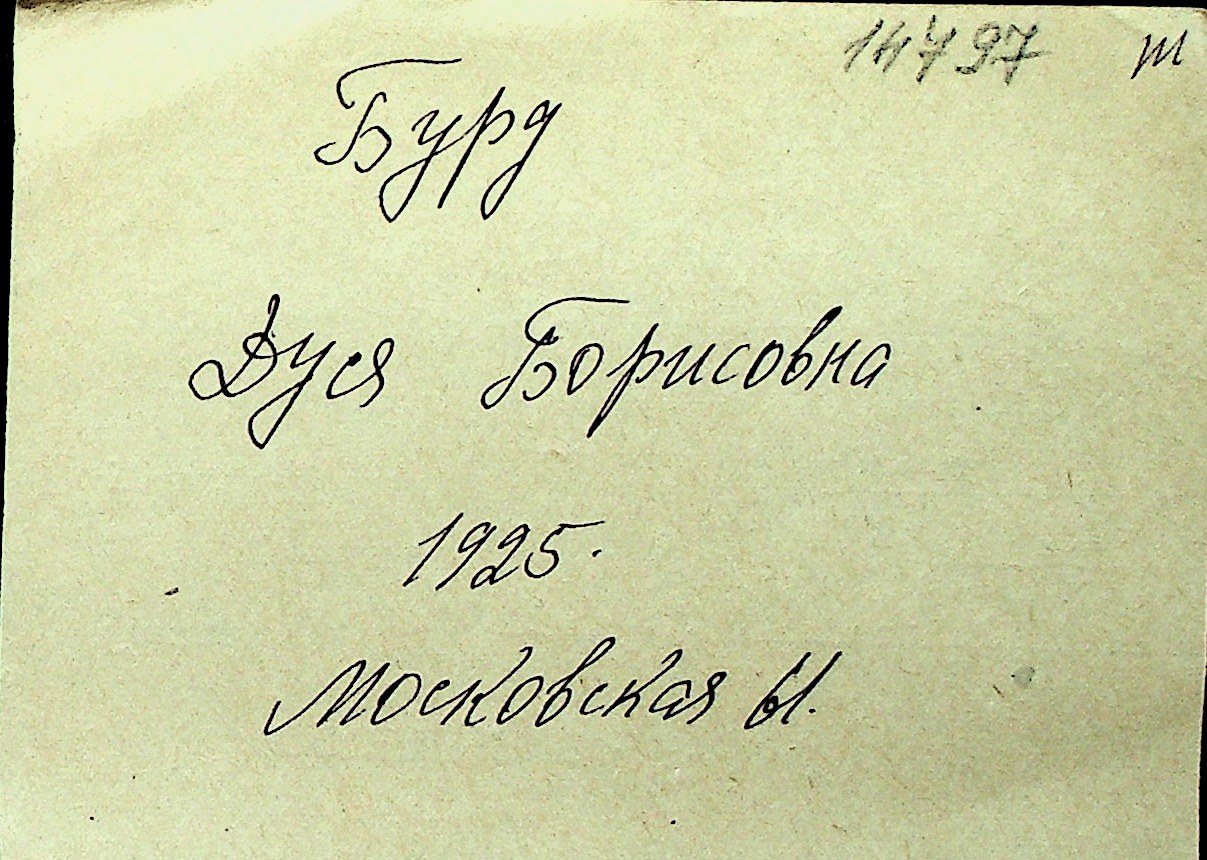 14797 т
Бурд
Дуся Борисовна
1925.
Московская 61.